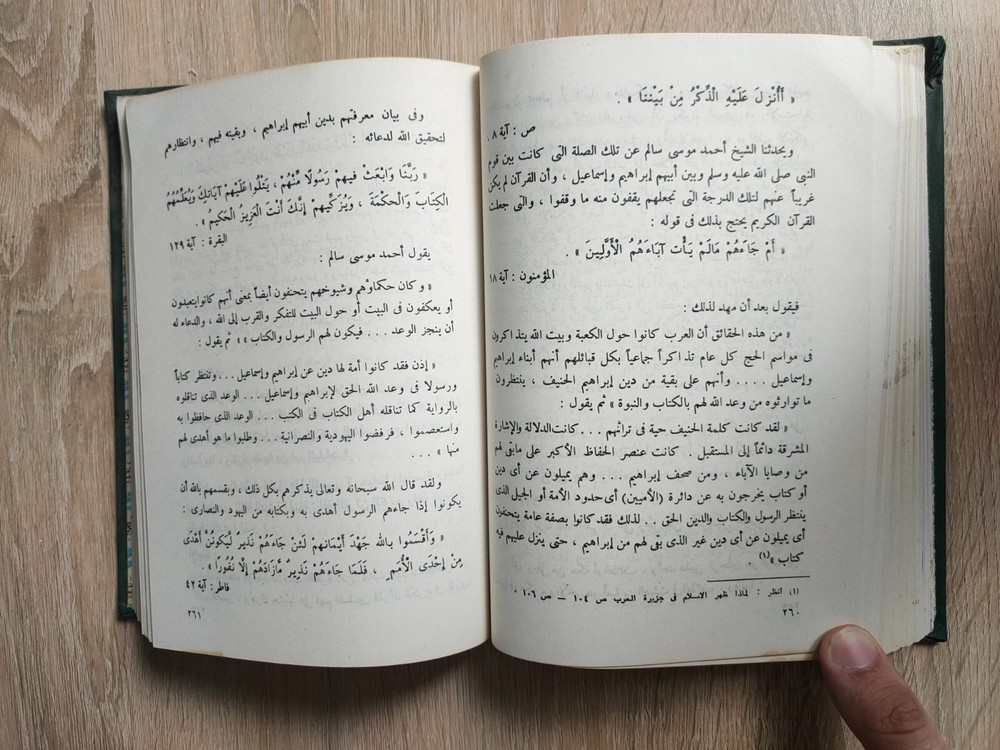 « أَأُنْزِلَ عَلَيْهِ الذِّكْرُ مِنْ بَيْنِنَا » .
ص : آية ٨ .
ويحدثنا الشيخ أحمد موسى سالم عن تلك الصلة التى كانت بين قوم
النبى صلى الله عليه وسلم وبين أبيهم إبراهيم وإسماعيل ، وأن القرآن لم يكن
غريباً عنهم لتلك الدرجة التى تجعلهم يقفون منه ما وقفوا ، والتى جعلت
القرآن الكريم يحتج بذلك فى قوله :
« أَمْ جَاءَهُمْ مَالَمْ يَأْتِ آبَاءَهُمُ الْأَوَّلِينَ » .
المؤمنون : آية ١٨
فيقول بعد أن مهد لذلك :
« من هذه الحقائق أن العرب كانوا حول الكعبة وبيت الله يتذاكرون
فى مواسم الحج كل عام تذاكراً جماعياً بكل قبائلهم أنهم أبناء إبراهيم
وإسماعيل .... وأنهم على بقية من دين إبراهيم الحنيف ، ينتظرون
ما توارثوه من وعد الله لهم بالكتاب والنبوة » ثم يقول :
« لقد كانت كلمة الحنيف حية فى تراثهم ... كانت الدلالة والإشارة
المشرقة دائماً إلى المستقبل . كانت عنصر الحفاظ الأكبر على مابقى لهم
من وصايا الآباء ، ومن صحف إبراهيم ... وهم يميلون عن أى دين
أو كتاب يخرجون به عن دائرة (الأميين) أى حدود الأمة أو الجيل الذى
ينتظر الرسول والكتاب والدين الحق .. لذلك فقد كانوا بصفة عامة يتحنفون
أى يميلون عن أى دين غير الذى بقى لهم من إبراهيم ، حتى ينزل عليهم فيه
كتاب »(١) .
(١) انظر : لماذا ظهر الاسلام فى جزيرة العرب ص ١٠٤ — ص ١٠٦ .
٢٦٠
وفى بيان معرفتهم بدين أبيهم إبراهيم ، وبقيته فيهم ، وانتظارهم
لتحقيق الله لدعائه :
« رَبَّنَا وَابْعَثْ فِيهِمْ رَسُولًا مِّنْهُمْ ، يَتْلُوا عَلَيْهِمْ آيَاتِكَ وَيُعَلِّمُهُمُ
الْكِتَابَ وَالْحِكْمَةَ ، وَيُزَكِّيهِمْ إِنَّكَ أَنْتَ الْعَزِيزُ الْحَكِيمُ » .
البقرة : آية ١٢٩
يقول أحمد موسى سالم :
« وكان حكماؤهم وشيوخهم يتحنفون أيضاً بمعنى أنهم كانوا يتعبدون
أو يعكفون فى البيت أو حول البيت للتفكر والقرب إلى الله ، والدعاء له
أن ينجز الوعد ... فيكون لهم الرسول والكتاب » » ثم يقول :
« إذن فقد كانوا أمة لها دين عن إبراهيم وإسماعيل ... وتنتظر كتاباً
ورسولا فى وعد الله الحق لإبراهيم وإسماعيل ... الوعد الذى تناقلوه
بالرواية كما تناقله أهل الكتاب فى الكتب ... الوعد الذى حافظوا به
واستعصموا ، فرفضوا اليهودية والنصرانية ... وطلبوا ما هو أهدى لهم
منها » ...
ولقد قال الله سبحانه وتعالى يذكرهم بكل ذلك ، وبقسمهم بالله أن
يكونوا إذا جاءهم الرسول أهدى به وبكتابه من اليهود والنصارى :
« وَأَقْسَمُوا بِاللهِ جَهْدَ أَيْمَانِهِمْ لَئِنْ جَاءَهُمْ نَذِيرٌ لَيَكُونُنَّ أَهْدَى
مِنْ إِحْدَى الْأُمَمِ ، فَلَمَّا جَاءَهُمْ نَذِيرٌ مَّازَادَهُمْ إِلَّا نُفُورًا » .
فاطر : آية ٤٢
٢٦١